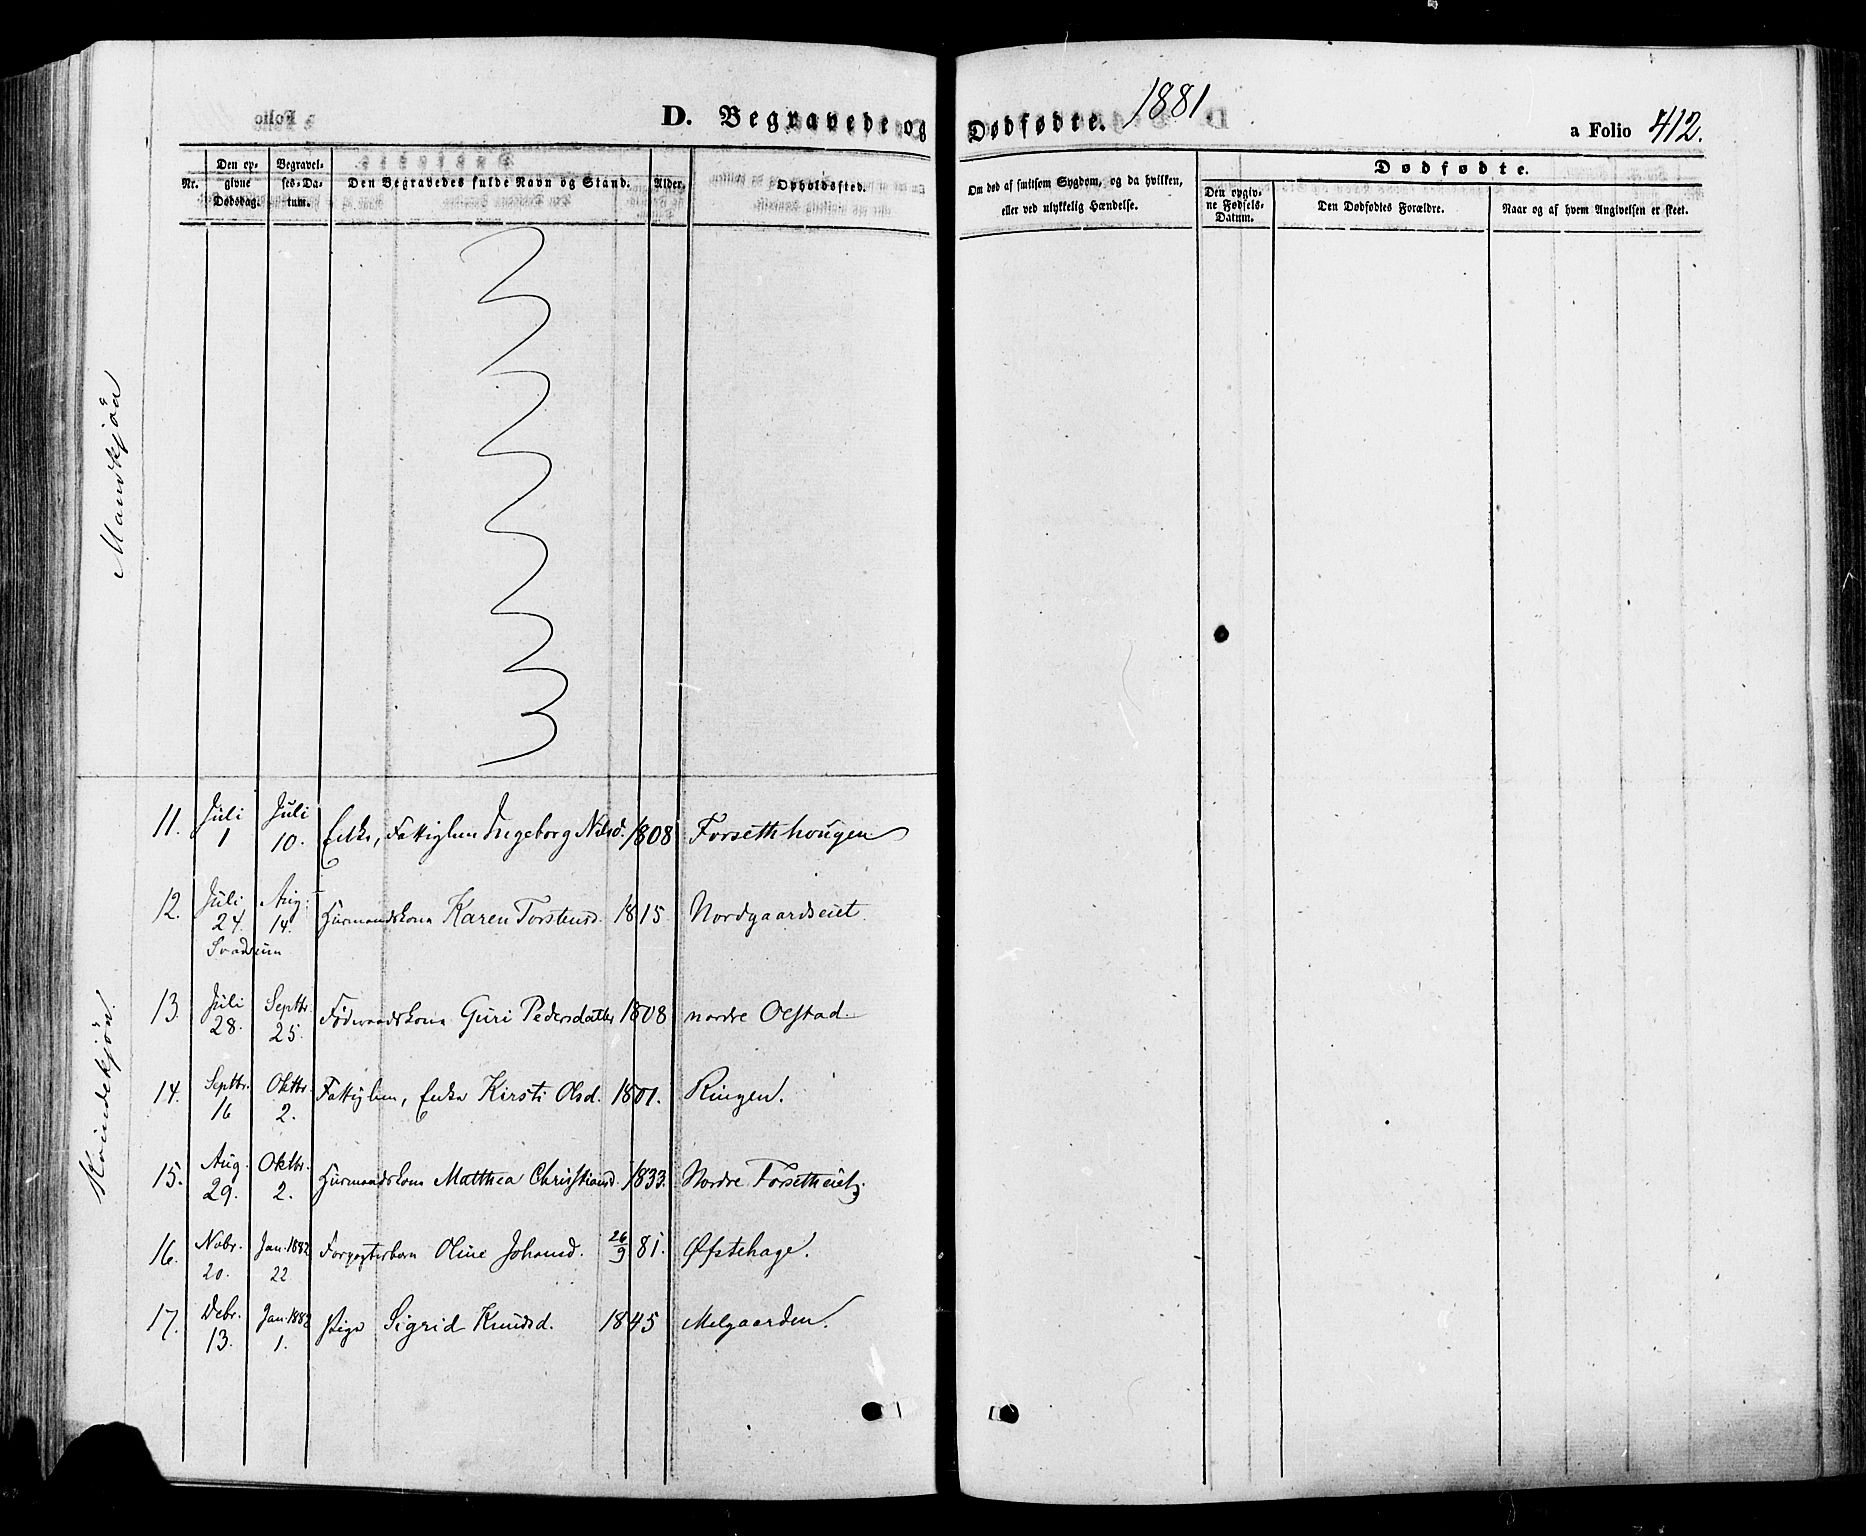 D. Begravede og Dødfødte. 1881
a Folio 412.
Nr.
Den opgivne Dødsdag.
Begravelses-Datum.
Den Begravedes fulde Navn og Stand.
Alder.
Opholdssted.
Om død af smitsom Sygdom, og da hvilken, eller ved ulykkelig Hændelse.
Dødfødte.
Den opgivne Fødsels-Datum.
Den Dødfødtes Forældre.
Naar og af hvem Angivelsen er skeet.
Mandkjøn
Kvindekjøn.
11. Juli 1 Juli 10. Enke, Fattiglem Ingeborg Nilsd. 1808 Forsethhougen
12. Juli 24. Aug. 14. Huusmandskone Karen Torstensd. 1815 Nordgaardseiet.
13. Juli 28. Septbr. 25. Føderaadskone Guri Pedersdatter 1808 nordre Oestad
14. Septbr. 16 Oktbr. 2. Fattiglem, Enke Kirsti Olsd. 1801. Ringen.
15. Aug. 29. Oktbr. 2. Huusmandskone Matthea Christiansd. 1833. Nordre Forsetheiet.
16. Nobr. 20. Jan. 1882 22 Forpagterbarn Oline Johansd. 26/9 81. Øfstehage.
17. Debr. 13. Jan. 1882 1. Pige Sigrid Knudsd. 1845 Melgaarden.